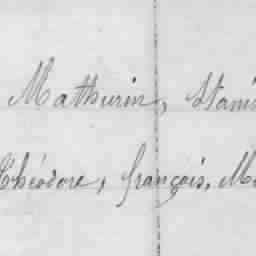 Mathurin, Stani
Théodore, françois, Ma